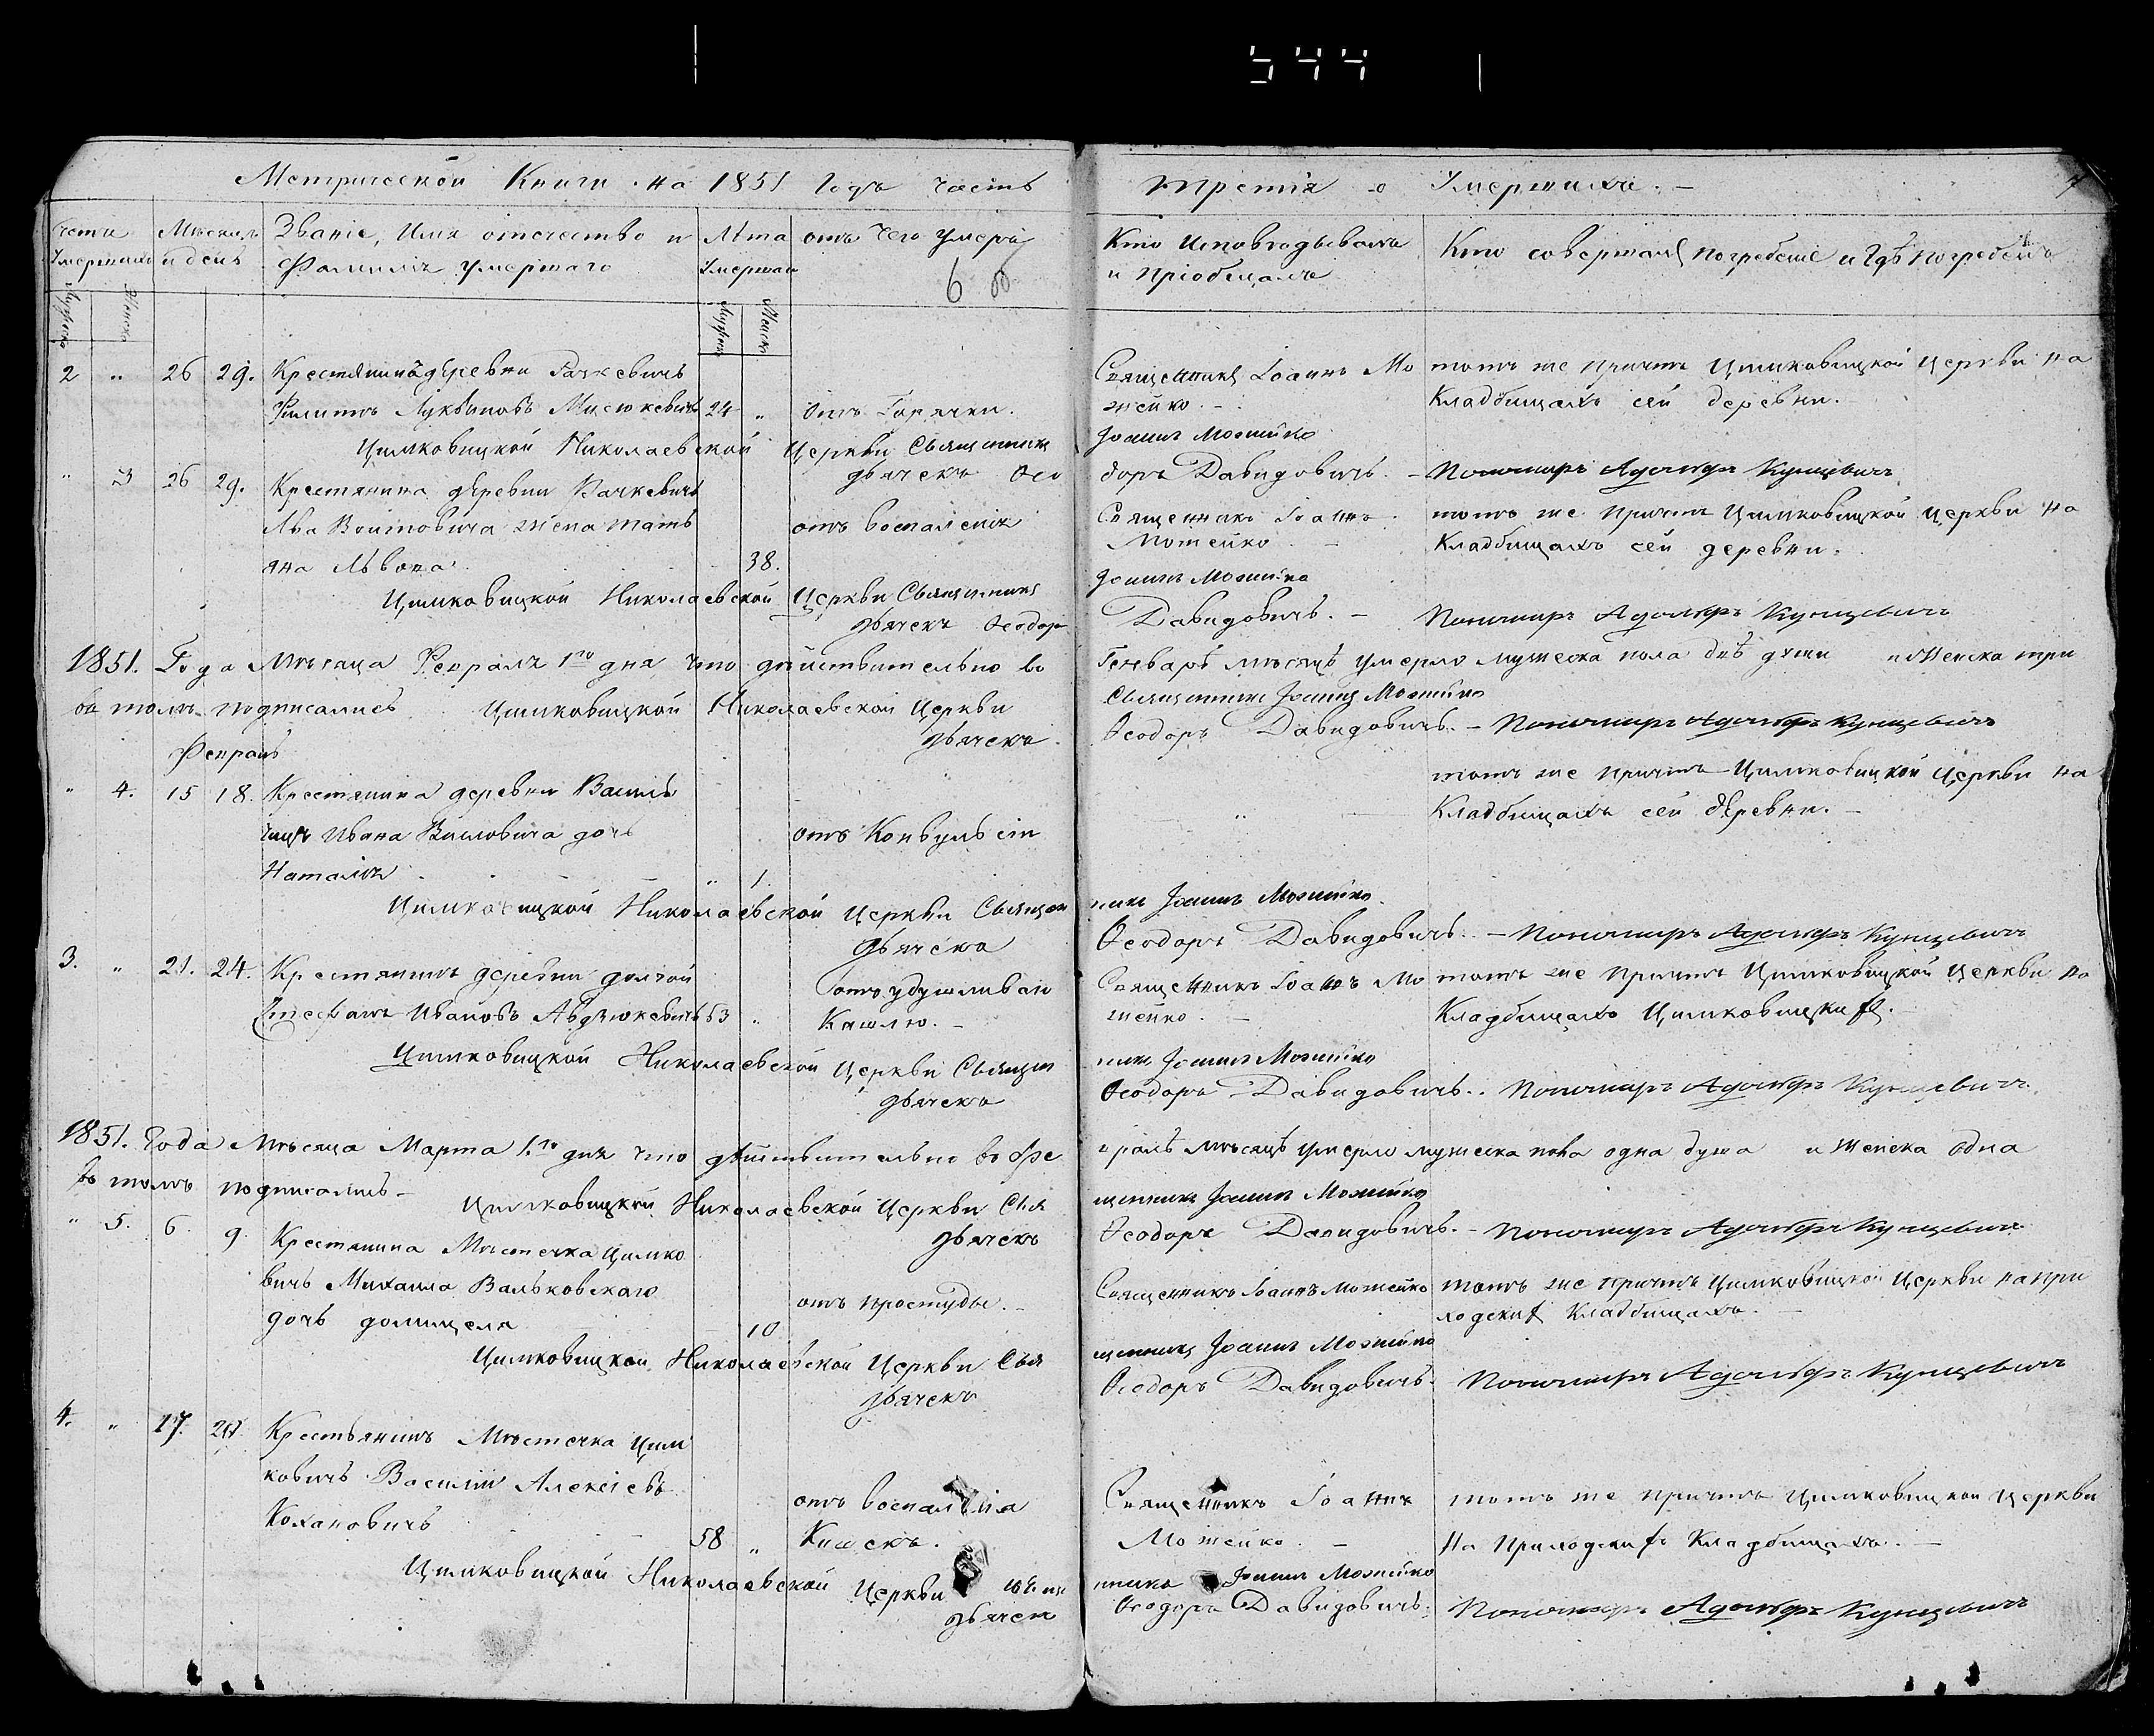 544
Метрической Книги на 1851 Годъ часть третія о Умершихъ. 7
Счетъ Умершихъ
Мѣсяцъ и день
Званіе, Имя отечество и Фамилія умершаго
Лѣта Умершаго
отъ чего умеръ
Кто Исповѣдывалъ и пріобщалъ
Кто совершалъ погребеніе и гдѣ погребенъ
Мужеска Женска Мужеска Женска
6
2 " 26 29. Крестянинъ деревни Рачкевичъ Священникъ Іоаннъ Мо тотъ же причтъ Цимковицкой церкви на
Филипъ Лукьяновъ Мисюкевичъ 24 " отъ Горячки. жейко. Кладбищахъ сей деревни.
Цимковицкой Николаевской Церкви Священникъ ІоаннъМожейко
дьячекъ Ѳео доръ Давидовичъ. Пономарь Адольфъ Кунцевичъ
" 3 26 29. Крестянина деревни Рачкевичъ
Льва Войтовича жена Тать отъ воспаленія Священникъ Іоаннъ тотъ же причтъ Цимковицкой церкви на
яна Львова 38. Можейко Кладбищахъ сей деревни.
Цимковицкой Николаевской Церкви Священникъ Іоаннъ Можейко
дьячекъ Ѳеодоръ Давидовичъ. Пономарь Адольфъ Кунцевичъ
1851. Года Мѣсяца Февраля 1го дня что действительно во Генварѣ мѣсяцѣ умерло мужеска пола двѣ души и Женска три
въ томъ подписались Цимковицкой Николаевской Церкви Священникъ Іоаннъ Можейко
дьячекъ Ѳеодоръ Давидовичъ. Пономарь Адольфъ Кунцевичъ
Февраль
" 4. 15 18. Крестянина деревни тотъ же причтъ Цимковицкой Церкви на
Ивана дочь отъ Конвульсіи " Кладбищахъ сей деревни.
Наталія " 1.
Цимковицкой Николаевской Церкви Священникъ Іоаннъ Можейко.
дьячекъ Ѳеодоръ Давидовичъ. Пономарь Адольфъ Кунцевичъ
3. " 21. 24. Крестянинъ деревни долгой отъ удушливаго Священникъ Іоаннъ Мо тотъ же причтъ Цимковицкой Церкви на
Стефанъ Ивановъ Авдзюкевичъ 63 " Кашлю. жейко. Кладбищахъ Цимковицкихъ.
Цимковицкой Николаевской Церкви Священникъ Іоаннъ Можейко
дьячекъ Ѳеодоръ Давидовичъ. Пономарь Адольфъ Кунцевичъ
1851. Года Мѣсяца Марта 1го дня что дѣйствительно во Февралѣ мѣсяцѣ умерло мужеска пола одна душа и Женска одна
въ томъ подписались Цимковицкой Николаевской Церкви Священникъ Іоаннъ Можейко
дьячекъ Ѳеодоръ Давидовичъ. Пономарь Адольфъ Кунцевичъ
" 5. 6. 9. Крестянина Мѣстечка Цимко
вичъ Михаила Вальковскаго отъ простуды. Священникъ Іоаннъ Можейко тотъ же причтъ Цимковицкой Церкви на при
дочь домицеля 10 ходскихъ Кладбищахъ.
Цимковицкой Николаевской Церкви Священникъ Іоаннъ Можейко
дьячекъ Ѳеодоръ Давидовичъ. Пономарь Адольфъ Кунцевичъ
4. " 17. 20. Крестьянинъ Мѣстечка Цим
ковичъ Василій Алексіевъ отъ воспаленія Священникъ Іоаннъ тотъ же причтъ Цимковицкой церкви
Кохановичъ 58 " Кишекъ. Можейко. На Приходскихъ Кладбищахъ.
Цимковицкой Николаевской Церкви Іоаннъ Можейко
дьячекъ Ѳеодоръ Давидовичъ. Пономарь Адольфъ Кунцевичъ